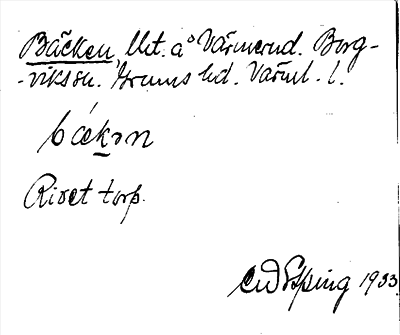 Bäcken, llt. å Värmerud. Borg-
-vikssn. Grums hd. Värml. l.
bäkən
Rivet torp.
Espling 1933.